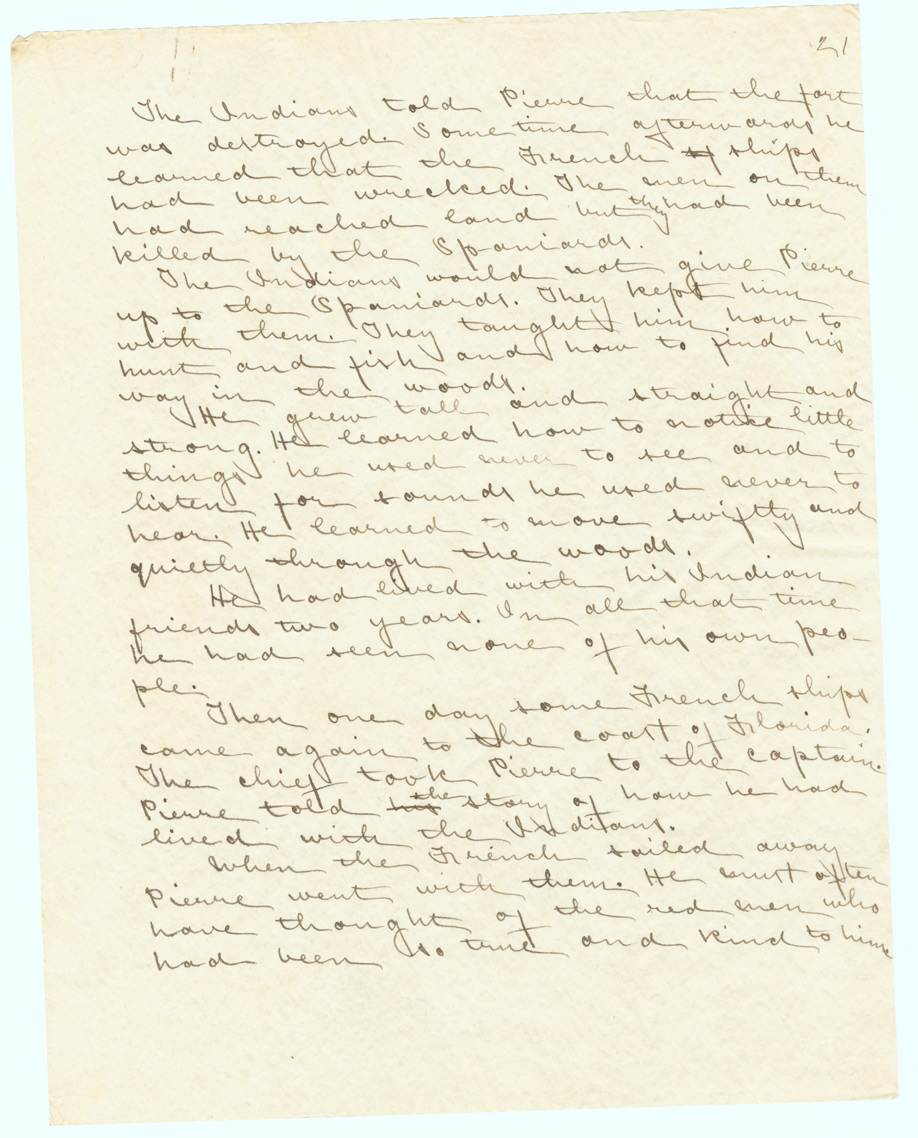 21
The Indians told Pierre that the fort
was destroyed. Sometime afterwards he
learned that the French ships
had been wrecked. The men on them
had reached land but they had been
killed by the Spaniards.
The Indians would not give Pierre
up to the Spaniards. They kept him
with them. They taught him how to
hunt and fish and how to find his
way in the woods.
He grew tall and straight and
strong. He learned how to notice little
things he used never to see and to
listen for sounds he used never to
hear. He learned to move swiftly and
quietly through the woods.
He had lived with his Indian
friends two years. In all that time
he had seen none of his own peo-
ple.
Then one day some French ships
came again to the coast of Florida.
The chief took Pierre to the captain.
Pierre told his the story of how he had
lived with the Indians.
When the French sailed away
Pierre went with them. He must often
have thought of the red men who
had been so true and kind to him